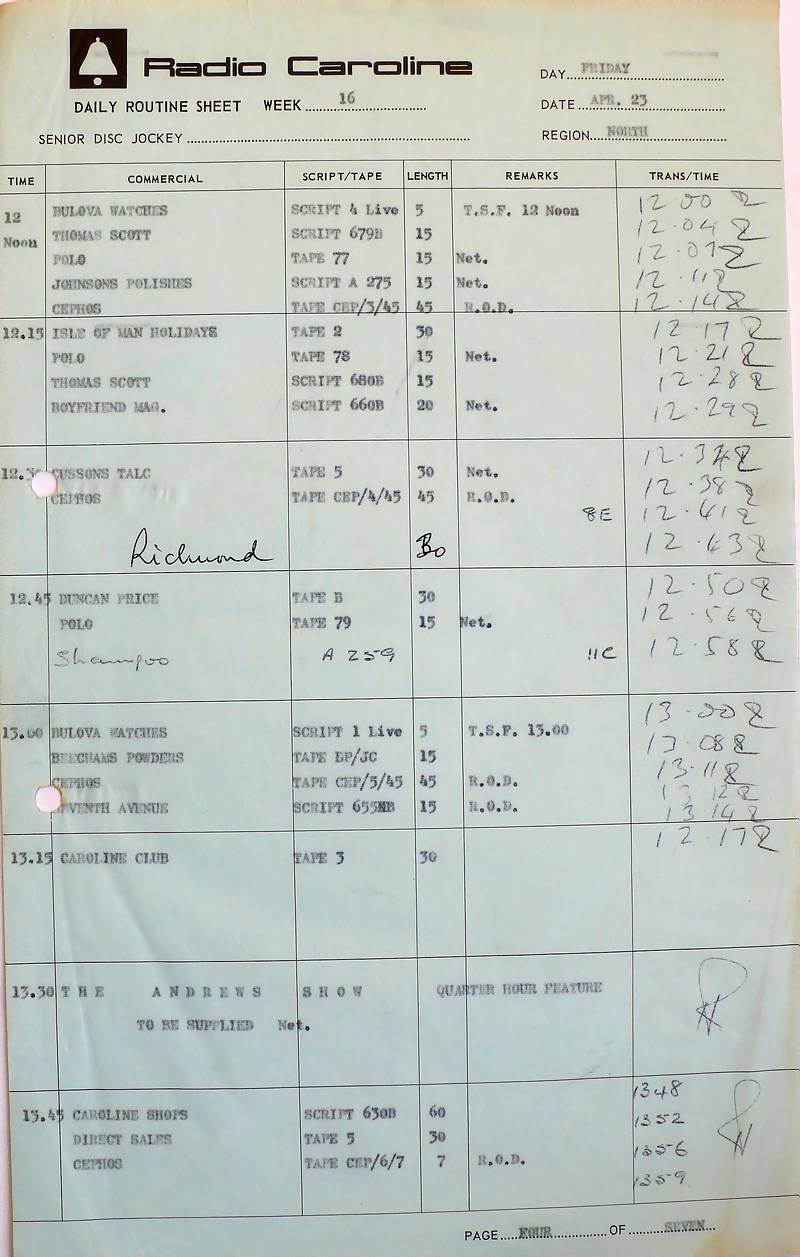 Radio Caroline
DAY FRIDAY
DAILY ROUTINE SHEET WEEK 16
DATE APR. 23
SENIOR DISC JOCKEY
REGION NORTH
TIME COMMERCIAL SCRIPT/TAPE LENGTH REMARKS TRANS/TIME
12 Noon BULOVA WATCHES SCRIPT 4 Live 5 T.S.F. 12 Noon 12 00
THOMAS SCOTT SCRIPT 679B 15 12.04
POLO TAPE 77 15 Net. 12.07
JOHNSONS POLISHES SCRIPT A 275 15 Net. 12.11
CEPHOS TAPE CEP/3/45 45 R.O.D. 12.14
12.15 ISLE OF MAN HOLIDAYS TAPE 2 30 12 17
POLO TAPE 78 15 Net. 12.21
THOMAS SCOTT SCRIPT 680B 15 12.28
BOYFRIEND MAG. SCRIPT 660B 20 Net. 12.29
CUSSONS TALC TAPE 5 30 Net. 12.34
CEPHOS TAPE CEP/4/45 45 R.O.D. 12.38
8E 12.41
Richmond 30 12.43
12.45 DUNCAN PRICE TAPE B 30 12.50
POLO TAPE 79 15 Net. 12.56
Shampoo A 259 11C 12.58
13.00 BULOVA WATCHES SCRIPT 1 Live 5 T.S.F. 13.00 13.00
BEECHAMS POWDERS TAPE BP/JC 15 13 08
CEPHOS TAPE CEP/5/45 45 R.O.D. 13.11
13 12
VENTH AVENUE SCRIPT 15 R.O.D. 13 14
13.15 CAROLINE CLUB TAPE 3 30 12.17
13.30 THE ANDREWS SHOW QUARTER HOUR FEATURE
TO BE SUPPLIED Net.
13.45 CAROLINE SHOPS SCRIPT 630B 60 1348
DIRECT SALES TAPE 5 30 1352
CEPHOS TAPE CEP/6/7 7 R.O.D. 1356
1359
PAGE FOUR OF SEVEN